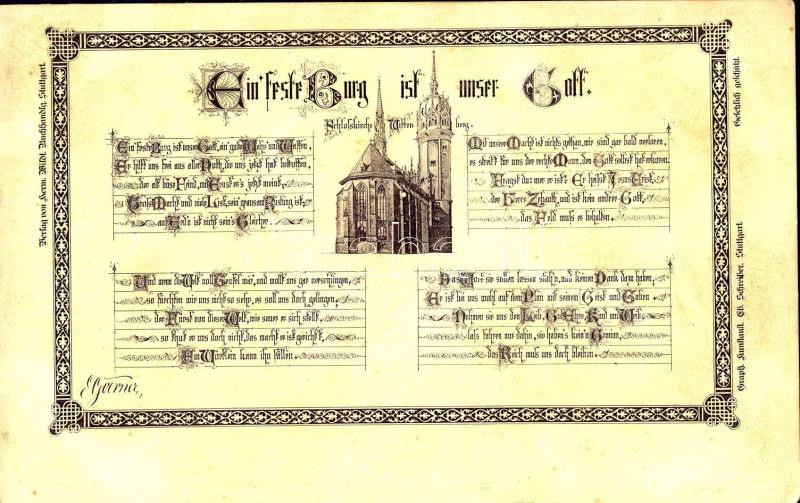 Ein' feste Burg ist unser Gott.
Schlosskirche Wittenberg.
Ein' feste Burg ist unser Gott, ein' gute Wehr und Waffen,
Er hilft uns frei aus aller Noth, die uns jetzt hat betroffen,
der alt böse Feind, mit Ernst er's jetzt meint,
Gross Macht und viel List, sein grausam Rüstung ist,
auf Erd'n ist nicht sein's Gleichen.
Mit unsrer Macht ist nichts gethan, wir sind gar bald verloren,
es streit't für uns der rechte Mann, den Gott selbst hat erkoren.
Fragst du: wer er ist? Er heisst Jesus Christ,
der Herre Zebaoth, und ist kein andrer Gott,
das Feld muss er behalten.
Und wenn die Welt voll Teufel wär, und wollt uns gar verschlingen,
so fürchten wir uns nicht so sehr, es soll uns doch gelingen.
der Fürst von dieser Welt, wie sauer er sich stellt,
so thut er uns doch nicht, das macht er ist gericht't,
Ein Wörtlein kann ihn fällen.
Das Wort sie sollen lassen stah'n, und keinen Dank dazu haben,
Er ist bei uns wohl auf dem Plan mit seinem Geist und Gaben
Nehmen sie uns den Leib, Gut, Ehr, Kind und Weib,
lass fahren nur dahin, sie haben's kein'n Gewinn,
das Reich muss uns doch bleiben.
Verlag von Herm. Wildt, Buchhandlg. Stuttgart.
Gesetzlich geschützt.
Graph. Kunstanst. Eb. Schreiber, Stuttgart.